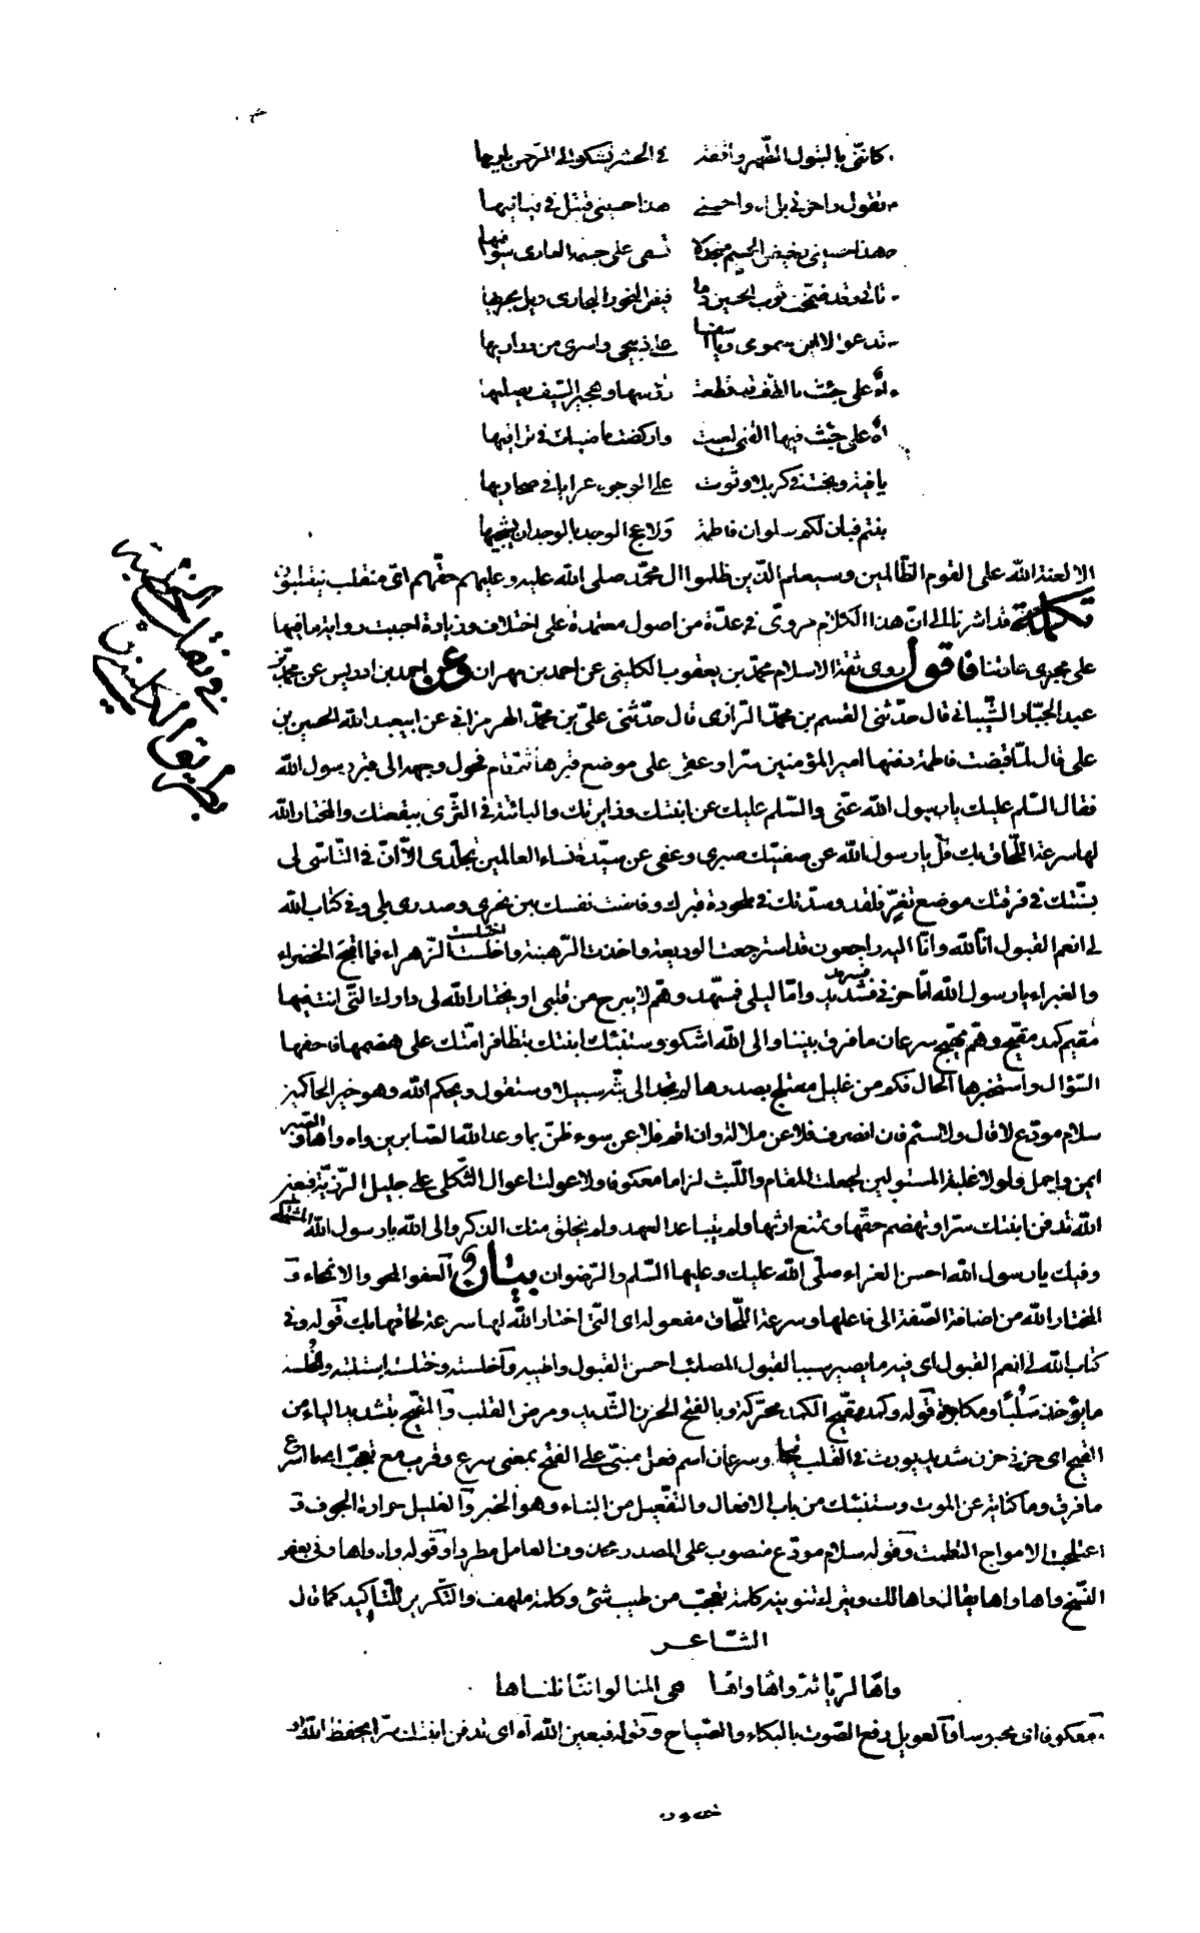 كانّى بالبتول الطّهر واقفة في الحشر تشكو الى الرّحمن باريها
تقول واحزنى بل آه واحزنى هذا حسينى قتيل في فيافيها
تأتى وقد ضمّخت ثوب الحسين دما فيض النحور الجارى
اه على جثث بالطف قد قطعت رؤسها وهجير الصيف يصليها
اه على جثث فيها القنى لعبت واركضت في تراقيها
يا فتية في كربلا وثوت على الوجوه عرايا في صحاريها
بنتم فبان لكم سلوان فاطمة ولاعج الوجد بالوجدان يشجيها
الا لعنة الله على القوم الظّالمين وسيعلم الّذين ظلموا ال محمّد صلى الله عليه وعليهم حقّهم اىّ منقلب ينقلبون
تكملة قد اشرنا الى انّ هذا الكلام مروىّ في عدّة من اصول معتمدة على اختلاف وزيادة احببت رواية ما فيها
على مجرى عادتنا فاقول روى ثقة الاسلام محمّد بن يعقوب الكلينى عن احمد بن مهران وعن احمد بن ادريس عن محمّد بن
عبد الجبّار الشّيبانى قال حدّثنى القسم بن محمّد الرّازى قال حدّثنى علىّ بن محمّد الهرمزانى عن ابيعبد الله الحسين بن
على قال لمّا قبضت فاطمة دفنها امير المؤمنين سرّا وعفى على موضع قبرها ثمّ قام فحول وجهه الى قبر رسول الله
فقال السّلم عليك يا رسول الله عنّى والسّلم عليك عن ابنتك وزايرتك والبائتة في الثّرى ببقعتك والمختار الله
لها سرعة اللّحاق بك قلّ يا رسول الله عن صفيّتك صبرى وعفى عن سيّدة نساء العالمين تجلّدى الّا انّ في التّأسّى لى
بسنّتك في فرقتك موضع تعزّ فلقد وسدّتك في ملحودة قبرك وفاضت نفسك بين نحرى وصدرى بلى وفى كتاب الله
لى انعم القبول انّا لله وانّا اليه راجعون قد استرجعت الوديعة واخذت الرّهينة واخلست الزّهراء فما اقبح الخضراء
اختلست
والغبراء يا رسول الله امّا حزنى فسرمد وامّا ليلى فمسهّد وهمّ لا يبرح من قلبى او يختار الله لى دارك الّتى انت فيها
مقيم كمد مقيّح وهمّ مهيّج سرعان ما فرق بيننا والى الله اشكو وستنبّئك ابنتك بتظافر امّتك على هضمها فاحفها
السّؤال واستخبرها الحال فكم من غليل معتلج بصدرها لم تجد الى بثّه سبيلا وستقول ويحكم الله وهو خير الحاكمين
سلام مودّع لا قال ولا سئم فان انصرف فلا عن ملالة وان اقم فلا عن سوء ظنّ بما وعد الله الصّابرين واه واها والصّبر
ايمن واجمل ولولا غلبة المستولين لجعلت المقام واللّبث لزاما معكوفا ولاعولت اعوال الثّكلى على جليل الرّزيّة فبعين
الله تدفن ابنتك سرّا وتهضم حقّها وتمنع ارثها ولم يتباعد العهد ولم يخلق منك الذكر والى الله يا رسول الله المشتكى
وفيك يا رسول الله احسن العزاء صلّى الله عليك وعليها السّلم والرّضوان بيان العفو المحو والانمحاء و
المختار الله من اضافة الصّفة الى فاعلها وسرعة اللّحاق مفعوله اى الّتى اختار الله لها سرعة لحاقها بك قوله وفى
كتاب الله لى انعم القبول اى فيه ما يصير سببا لقبول المصائب احسن القبول
ما يؤخذ سَلْبًا ومكابرة قوله وكمد مقيّح الكمد محرّكة وبالفتح الحزن الشّديد ومرض القلب والمقيّح بتشديد الياء من
القيح اى حزنى حزن شديد يورث في القلب قيحا وسرعان اسم فعل مبنىّ على الفتح بمعنى سرع وقرب مع تعجّب اى ما اسرع
ما فرق وما كناية عن الموت وستنبئك من باب الافعال والتفعيل من النباء وهو الخبر والغليل حرارة الجوف و
اعتلجت الامواج التطمت وقوله سلام مودّع منصوب على المصدر محذوف العامل مطردا وقوله واه واها وفى بعض
النّسخ واها واها يقال واها لك ويترك تنوينه كلمة تعجّب من طيب شئ وكلمة تلهف والتّكرير للتّأكيد كما قال
الشّاعر
واها لريّا ثمّ واها واها هى المنا لو انّنا نلناها
معكوفا اى محبوسا والعويل رفع الصّوت بالبكاء والصّياح وقوله فبعين الله اه اى تدفن ابنتك سرّا بحفظ الله و
في نقل الخطبة
بطريق الكلينى